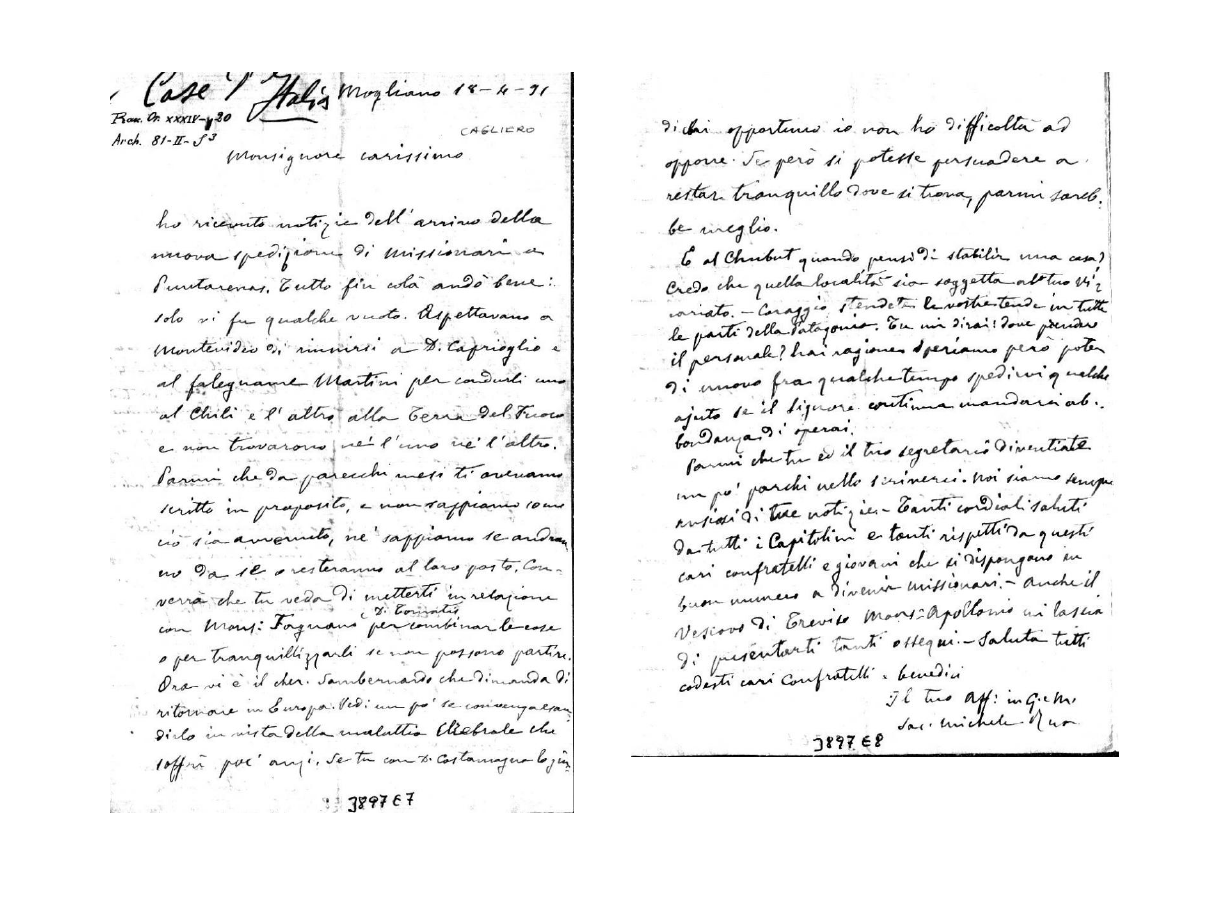 Case d' Italia
Mogliano 18-4-91
Arch. 81-II-S3
CAGLIERO
Monsignore carissimo
ho ricevuto notizie dell'arrivo della
nuova spedizione di missionari a
Puntarenas. Tutto fin colà andò bene:
solo vi fu qualche vuoto. Aspettavano a
Montevideo di riunirsi a D. Caprioglio e
al falegname Martini per condurli uno
al Chilì e l'altro alla Terra del Fuoco
e non trovarono nè l'uno nè l'altro.
Parmi che da parecchi mesi ti avevamo
scritto in proposito, e non sappiamo come
ciò sia avvenuto, nè sappiamo se andran
no da sè o resteranno al loro posto. Con-
verrà che tu veda di metterti in relazione
con Mons: Fagnano per combinar le cose
o per tranquillizzarli se non possono partire.
Ora vi è il cher. Sambernardo che dimanda di
ritornare in Europa. Vedi un po' se convenga esau
dirlo in vista della malattia che
soffrì poc'anzi. Se tu con D. Costamagna lo giu
3897 E 7
dichi opportuno io non ho difficoltà ad
opporre. Se però si potesse persuadere a
restar tranquillo dove si trova, parmi sareb.
be meglio.
E al Chubut quando pensi di stabilir una casa?
Credo che quella località sia soggetta al tuo Vi
cariato. - Coraggio stendete le vostre tende in tutte
le parti della Patagonia. Tu mi dirai: dove prendere
il personale? hai ragione. Speriamo però poter
di nuovo fra qualche tempo spedirvi qualche
ajuto se il Signore continua mandarci ab-
bondanza di operai.
Parmi che tu ed il tuo segretario diventiate
un po' parchi nello scriverci. Noi siamo sempre
ansiosi di tue notizie. - Tanti cordiali saluti
da tutti i Capitolini e tanti rispetti da questi
cari confratelli e giovani che si dispongono in
buon numero a divenir missionari. - Anche il
Vescovo di Treviso Mons: Apollonio mi lascia
di presentarti tanti ossequi. - Saluta tutti
codesti cari Confratelli e benedici
Il tuo Aff: in G. e M.
Sac. Michele Rua
3897 E 8